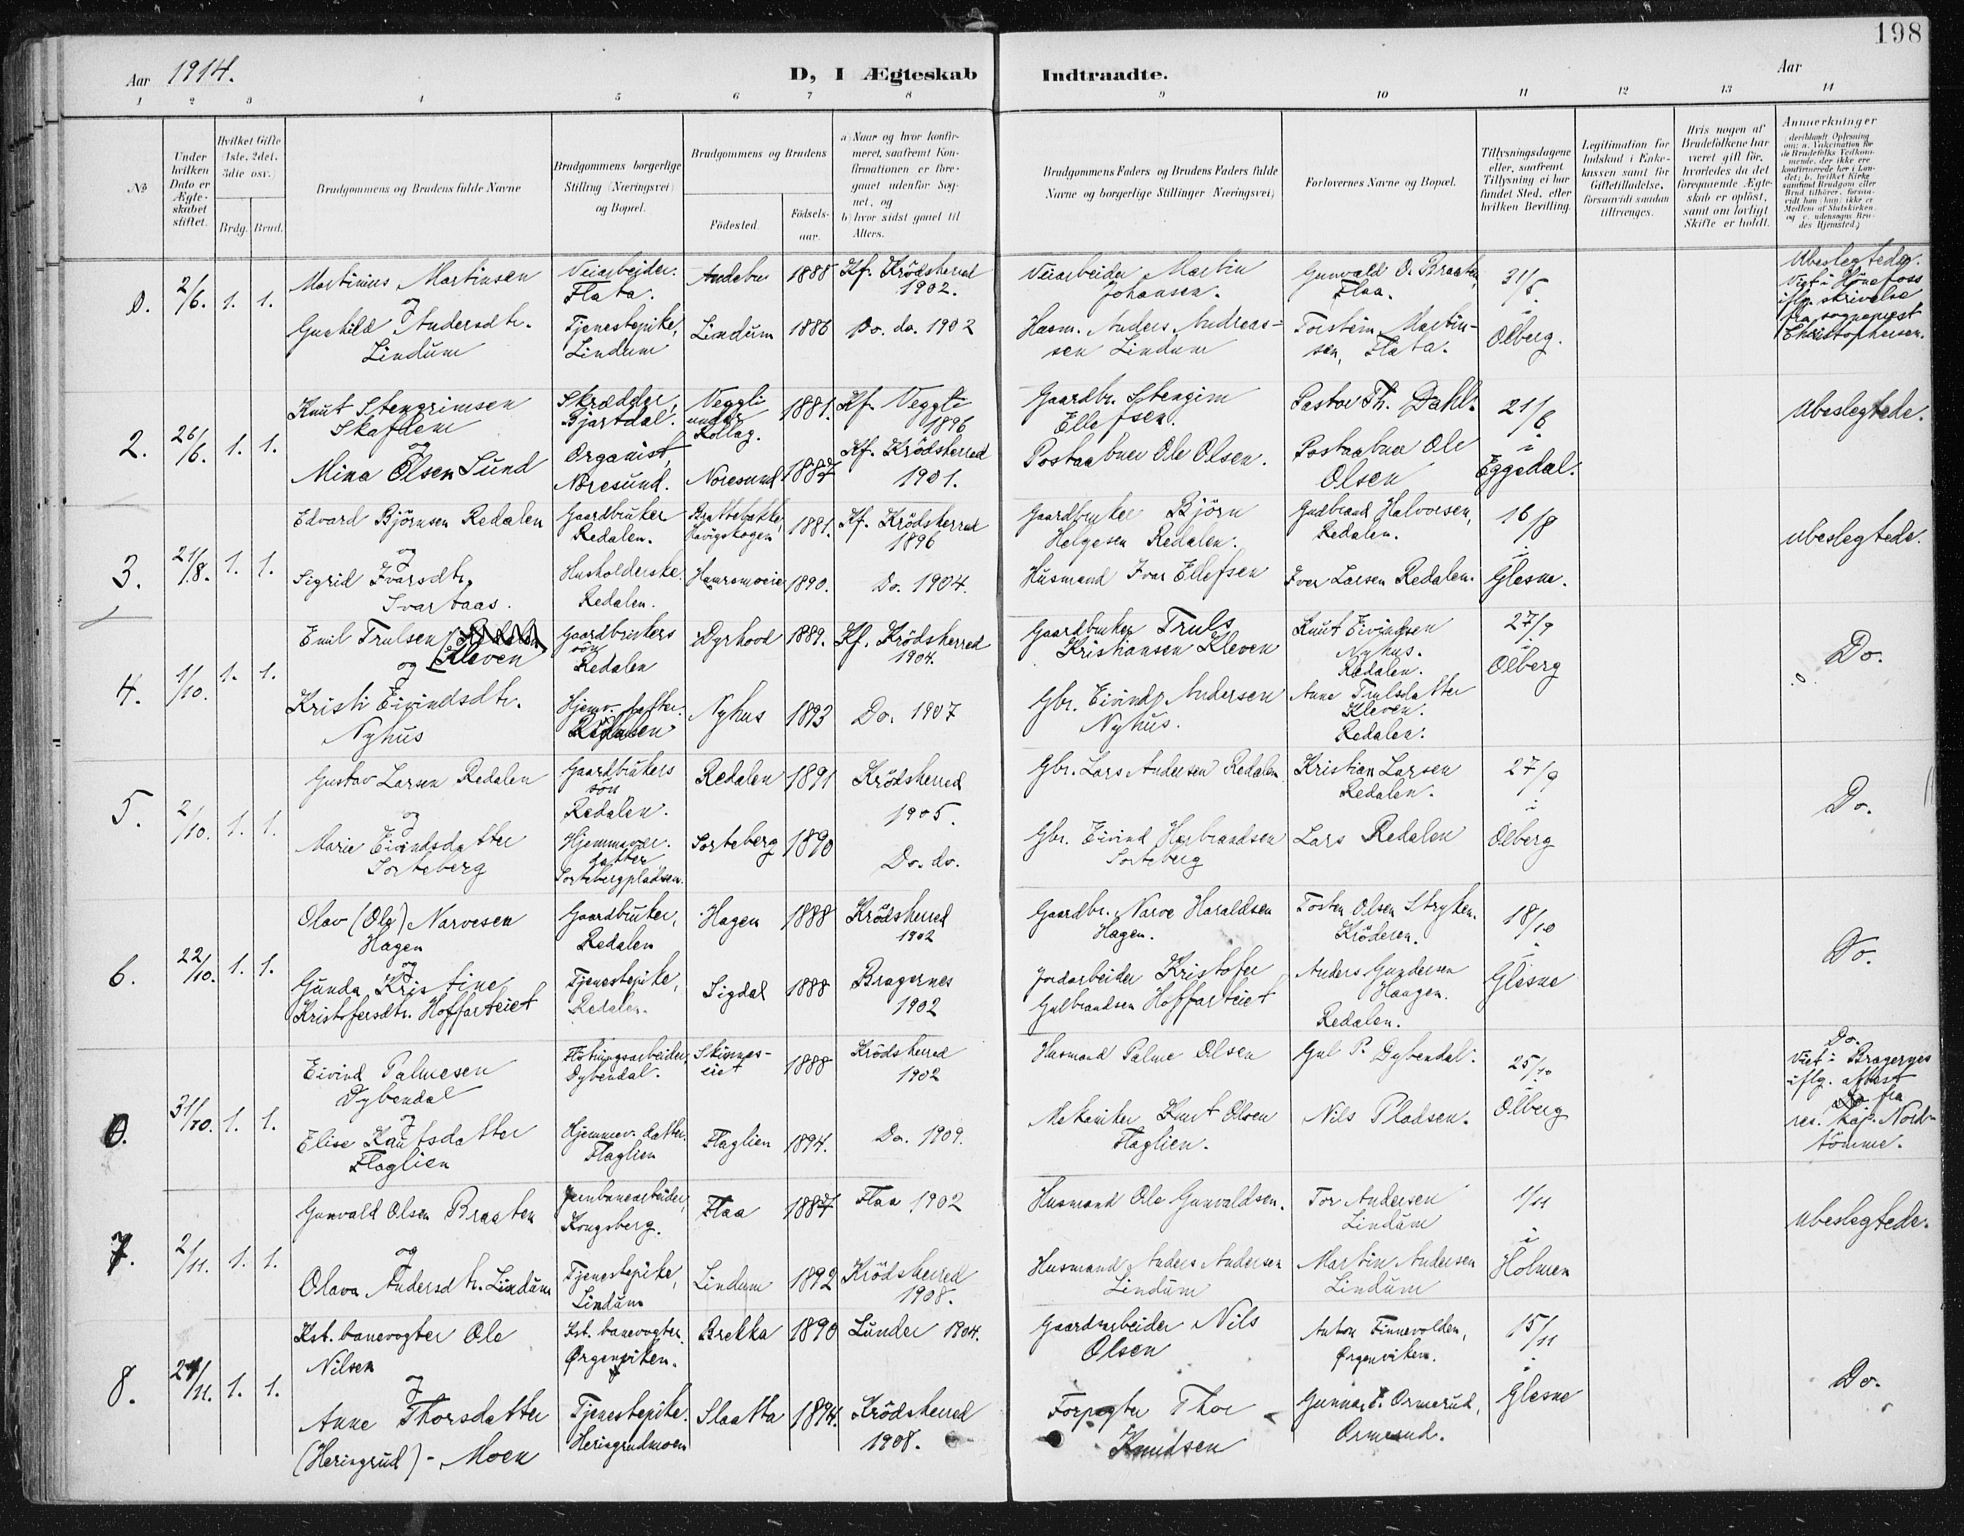 198
Aar 1914.
D, I Ægteskab Indtraadte.
Aar
1 2 3 4 5 6 7 8 9 10 11 12 13 14
№
Under hvilken Dato er Ægteskabet stiftet.
Hvilket Gifte 1ste, 2det, 3die osv.
Brdg. Brud.
Brudgommens og Brudens fulde Navne
Brudgommens borgerlige Stilling (Næringsvei) og Bopæl.
Brudgommens og Brudens
Fødested.
Fødselsaar.
a) Naar og hvor konfirmeret, saafremt Konfirmationen er foregaaet udenfor Sognet, og
b) hvor sidst gaaet til Alters.
Brudgommens Faders og Brudens Faders fulde Navne og borgerlige Stillinger (Næringsvei)
Forlovernes Navne og Bopæl.
Tillysningsdagene eller, saafremt Tillysning ei har fundet Sted, efter hvilken Bevilling.
Legitimation for Indskud i Enkekassen samt for Giftetilladelse, forsaavidt saadan tiltrænges.
Hvis nogen af Brudefolkene har været gift før, hvorledes da det foregaaende Ægteskab er opløst, samt om lovligt Skifte er holdt.
Anmerkninger
0. 2/6. 1. 1.
Martinius Martinsen
og
Gunhild Andersdtr.
Lindum
Veiarbeider.
Flata.
Tjenestepike,
Lindum
Andebu 1888 Kf. Krödsherred
1902.
Lindum 1886 Do. do. 1902
Veiarbeider Martin
Johansen.
Husm. Anders Andreas-
sen Lindum
Gunvald O. Braaten,
Flaa.
Torstein Martin-
sen, Flata.
31/5
i
Olberg.
Ubeslegtede.
Viet i Hönefoss
iflg. skrivelse
fra sogneprest
Christophersen.
2. 26/6. 1. 1.
Knut Stengrimsen
Skafdem
og
Mina Olsen Lund
Skrædder,
Bjartdal.
Organist,
Noresund.
Veggli
under
Rollag.
1881. Kf. Veggli
1896
Noresund 1887 Kf. Krödsherred
1901.
Gaardbr. Stengim
Ellefsen.
Postaabner Ole Olsen.
Pastor Th. Dahl.
Postaabner Ole
Olsen
21/6
i
Eggedal.
Ubeslegtede.
3. 21/8. 1. 1.
Edvard Björnsen Redalen
og
Sigrid Ivarsdtr.
Svartaas.
Gaardbruker
Redalen.
Husholderske.
Redalen.
1881. Kf. Krödsherred
1896
1890. Do. 1904.
Gaardbruker Björn
Helgesen Redalen.
Husmand Ivar Ellefsen
Gudbrand Halvorsen,
Redalen.
Iver Larsen Redalen.
16/8
i
Glesne.
ubeslegtede.
4. 1/10. 1. 1.
Emil Trulsen
og (Kleven
Kristi Eivindsdtr.
Nyhus
Gaardbrukers
sön
Redalen
Hjemv. datter.
Dyrhood 1889. Kf. Krödsherred
1904.
Nyhus 1893 Do. 1907
Gaardbruker Truls
Kristiansen Kleven
Gbr. Eivind Andersen
Nyhus.
Knut Eivindsen
Nyhus.
Redalen.
Anne Trulsdatter
Kleven.
Redalen.
27/9
i
Olberg
Do.
5. 2/10. 1. 1.
Gustav Larsen Redalen
og
Marie Eivindsdatter
Sorteberg
Gaardbrukers
sön
Redalen.
Hjemmevær.
datter
Sortebergpladsen.
Redalen 1891 Krödsherred
1905.
Sorteberg 1890 Do. do.
Gbr. Lars Andersen Redalen
Gbr. Eivind Herbrandsen
Sorteberg
Kristian Larsen
Redalen.
Lars Redalen
27/9
i
Olberg
Do.
6. 22/10. 1. 1.
Olav (Ole) Narvesen
Hagen
og
Gunda Kristine
Kristofersdtr. Hoffarteiet
Gaardbruker,
Redalen
Tjenestepike,
Redalen.
Hagen 1888 Krödsherred
1902
Sigdal 1888 Bragernes
1902
Gaardbr. Narve Haraldsen
Hagen.
Jordarbeider Kristofer
Gulbrandsen Hoffarteiet
Tosten Olsen Stryken.
Kröderen.
Anders Gundersen
Haagen.
Redalen.
18/10
i
Glesne
Do.
0. 31/10. 1. 1.
Eivind Palmesen
Dybendal
og
Elise Knutsdatter
Flaglien
Flötningsarbeider,
Dybendal.
Hjemmev. datter.
Flaglien
Skinnes-
eiet
1888 Krödsherred
1902
Flaglien 1894. Do. 1909.
Husmand Palme Olsen
Mekaniker Knut Olsen
Flaglien.
Gul P. Dybendal.
Nils Pladsen.
25/10
i
Olberg
Do.
Viet i Bragernes
iflg. attest
fra
res. kap. Nord-
tömme.
7. 2/11. 1. 1.
Gunvald Olsen Braaten
og
Olava Andersdtr. Lindum
Jernbanearbeider,
Kongsberg.
Tjenestepike,
Lindum
Flaa 1887 Flaa 1902
Lindum 1892 Krödsherred
1908.
Husmand Ole Gunvaldsen.
Husmand Anders Andersen
Lindum
Tor Andersen
Lindum
Martin Andersen
Lindum
1/11
i
Holmen
ubeslegtede.
8. 21/11. 1. 1.
Kst. banevogter Ole
Nilsen
og
Anne Thorsdatter
(Heringrud) - Moen
Kst. banevogter.
Ørgenviken.
Tjenestepike.
Heringrudmoen
Brekka 1890 Lunder 1904.
Slaatta 1894. Krödsherred
1908.
Gaardsarbeider Nils
Olsen
Forpagter Thor
Knudsen
Anton Finnevolden,
Ørgenviken.
Gunnar E. Ormerud,
Ormerud.
15/11
i
Glesne
Do.